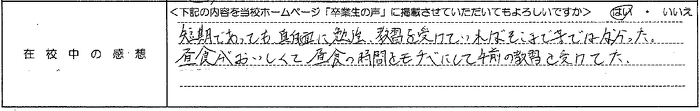 <下記の内容を当校ホームページ「卒業生の声」に掲載させていただいてもよろしいですか> はい ・ いいえ
在校中の感想
短期であっても真面目に勉強、教習を受けていればそこまで苦ではなかった。
昼食がおいしくて昼食の時間をモチベにして午前の教習を受けてた。